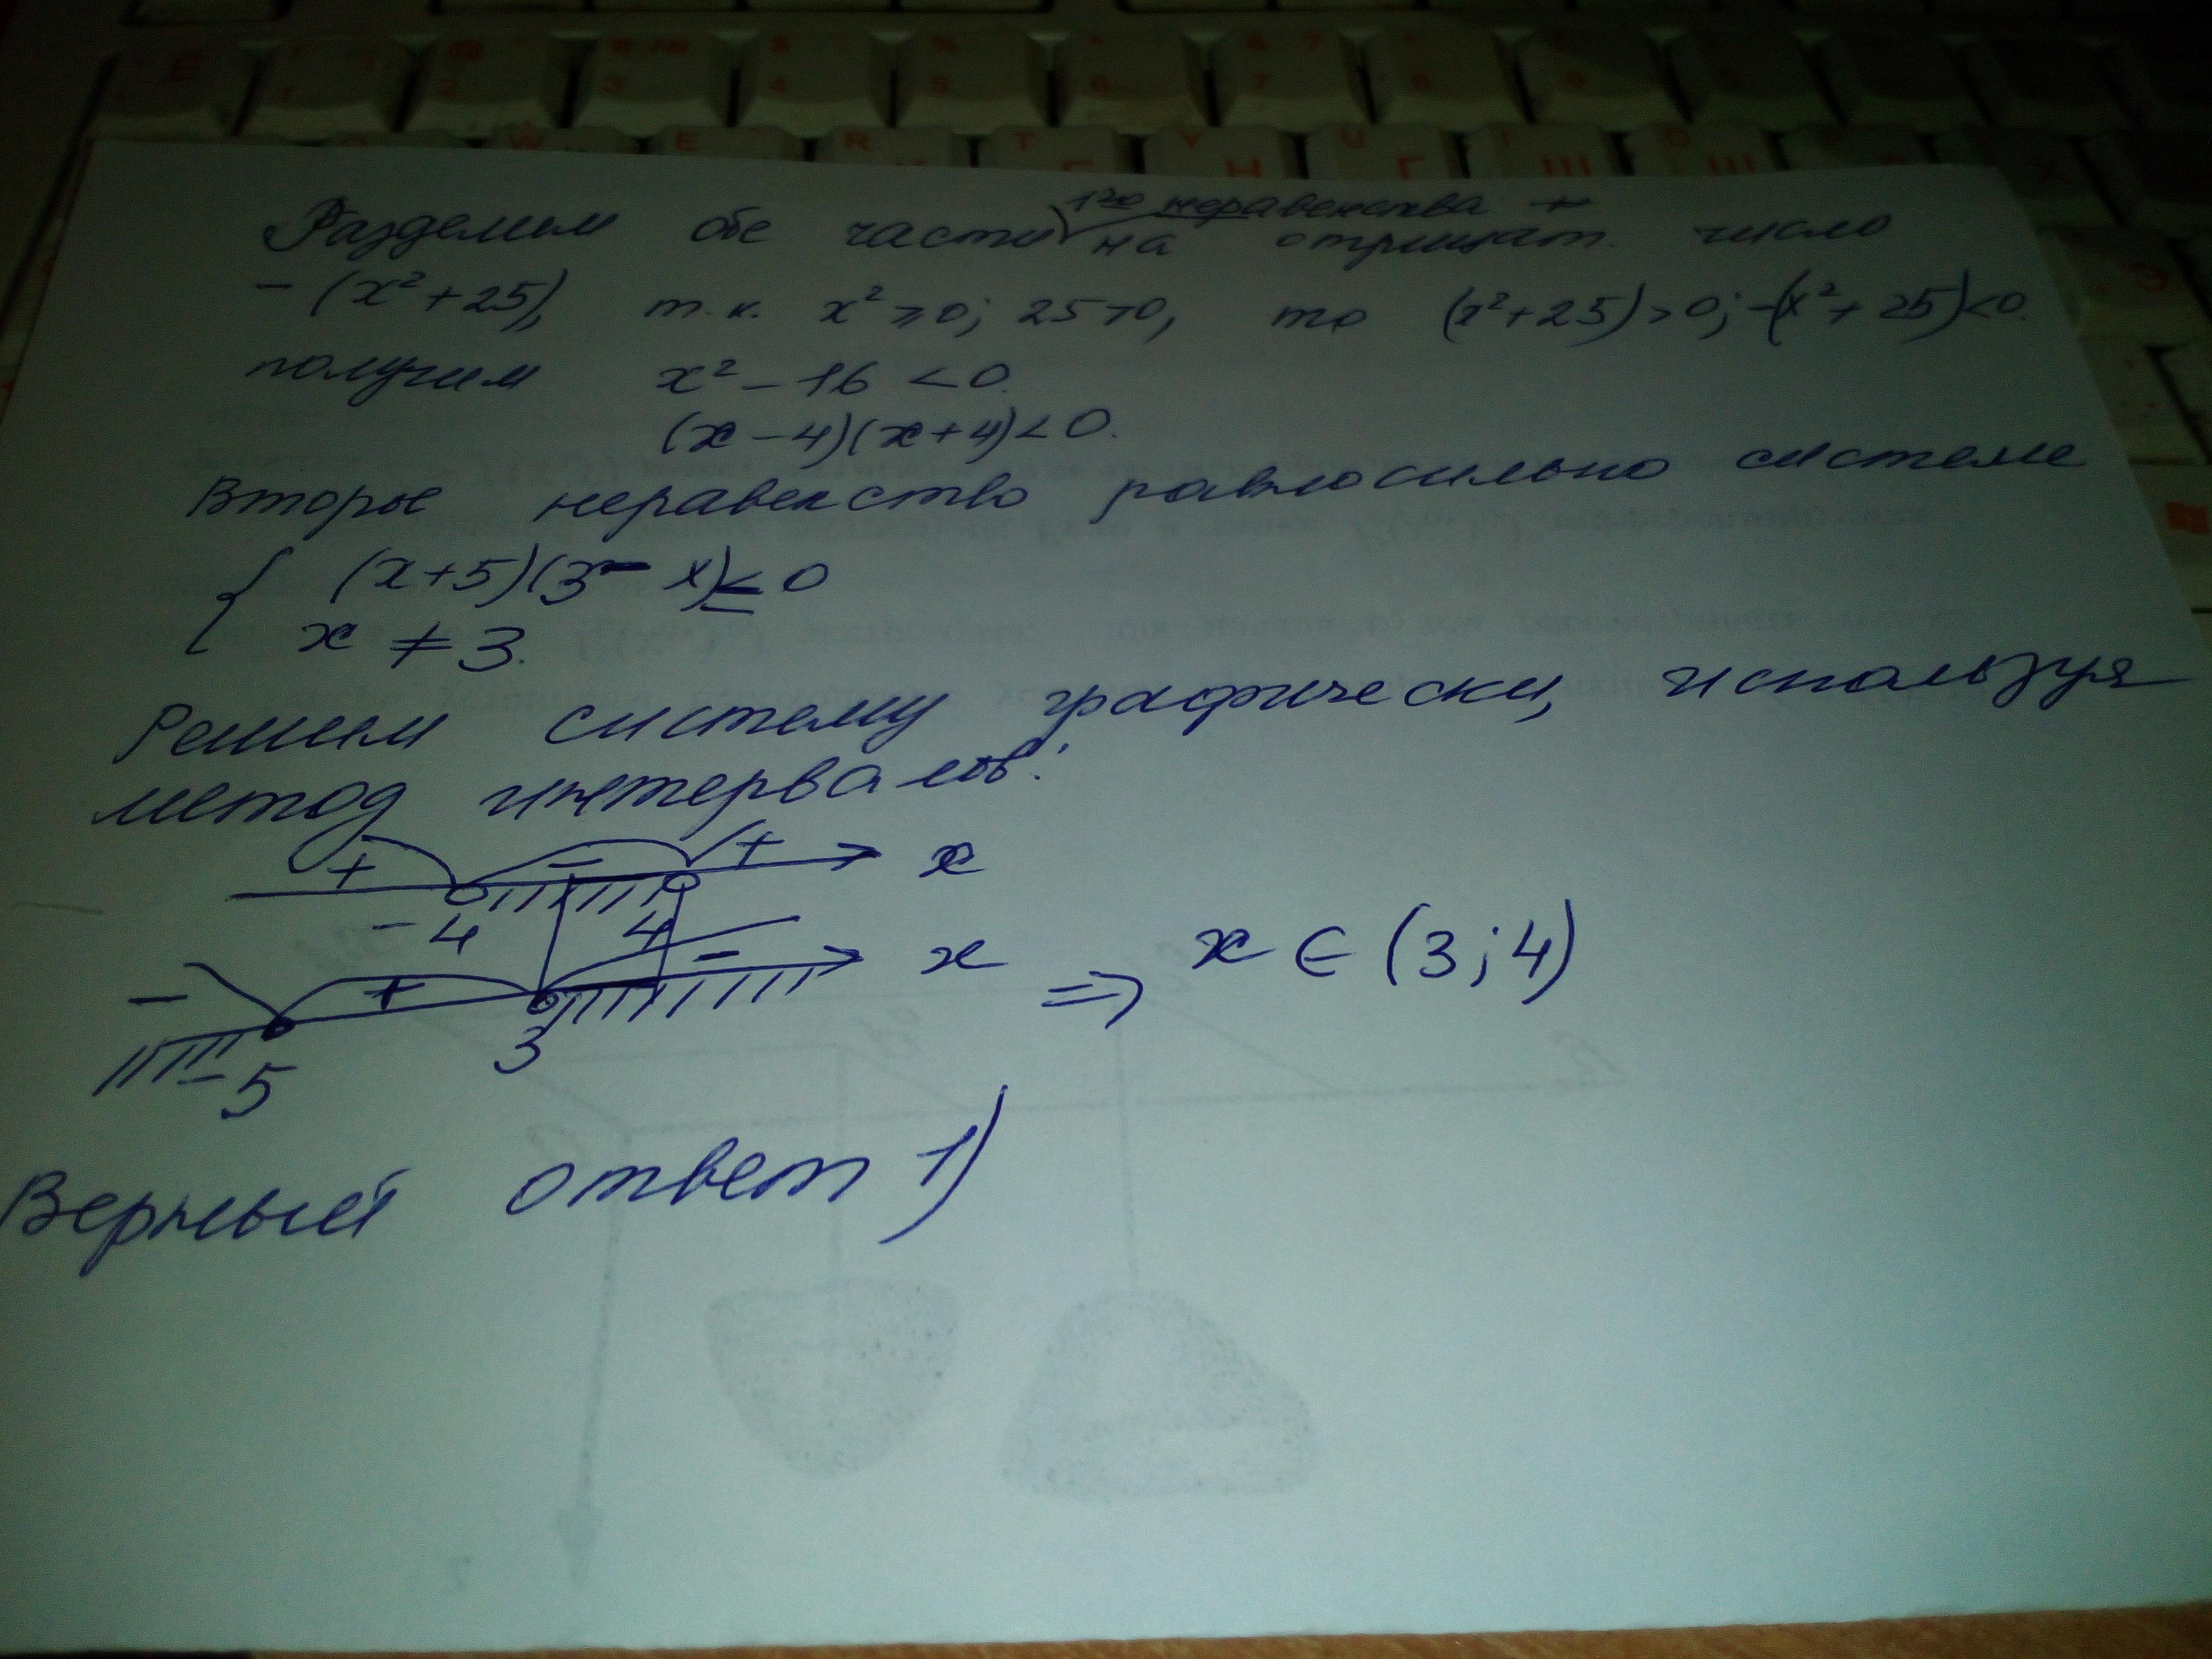 1го неравенства
Разделим обе части на отрицат. число
- (x² + 25), т.к. x² ⩾ 0; 25 > 0, то (x² + 25) > 0; -(x² + 25) < 0.
получим x² - 16 < 0.
(x - 4)(x + 4) < 0.
Второе неравенство равносильно системе
{ (x + 5)(3 - x) ≤ 0
x ≠ 3.
Решим систему графически, используя
метод интервалов:
+ - + x
-4 4
- + - x ⇒ x ∈ (3; 4)
-5 3
Верный ответ 1)